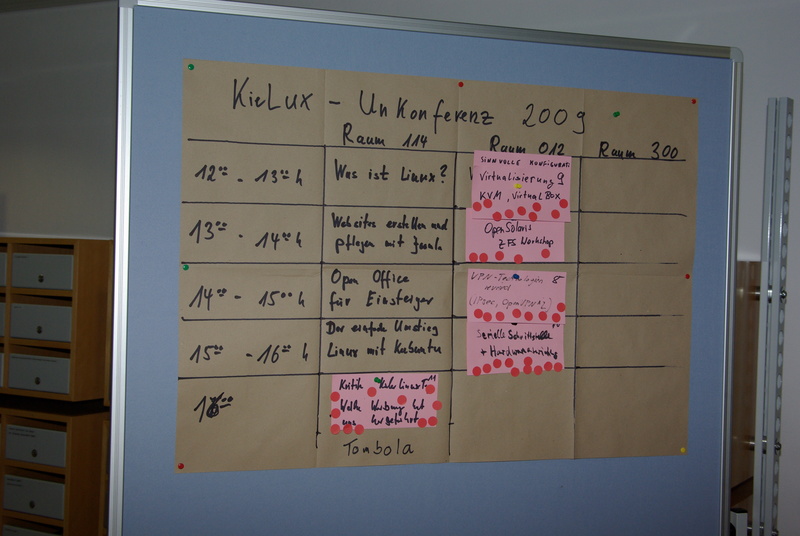 KieLux - UnKonferenz 2009
Raum 114 Raum 012 Raum 300
12⁰⁰ - 13⁰⁰ h
Was ist Linux?
SINNVOLLE KONFIGURATI
Virtualisierung 9
KVM, Virtual Box
13⁰⁰ - 14⁰⁰ h
Webseiten erstellen und
pflegen mit Joomla
OpenSolaris
ZFS Workshop
14⁰⁰ - 15⁰⁰ h
Open Office
für Einsteiger
VPN-Technologien 8
(IPsec, OpenVPN
15⁰⁰ - 16⁰⁰ h
Der einfache Umstieg
Linux mit Kubuntu
Serielle Schnittstelle
+ Hardware
16⁰⁰
Kritik KieLinuxT 11
Welche Werbung hat
uns hergeführt
Tombola